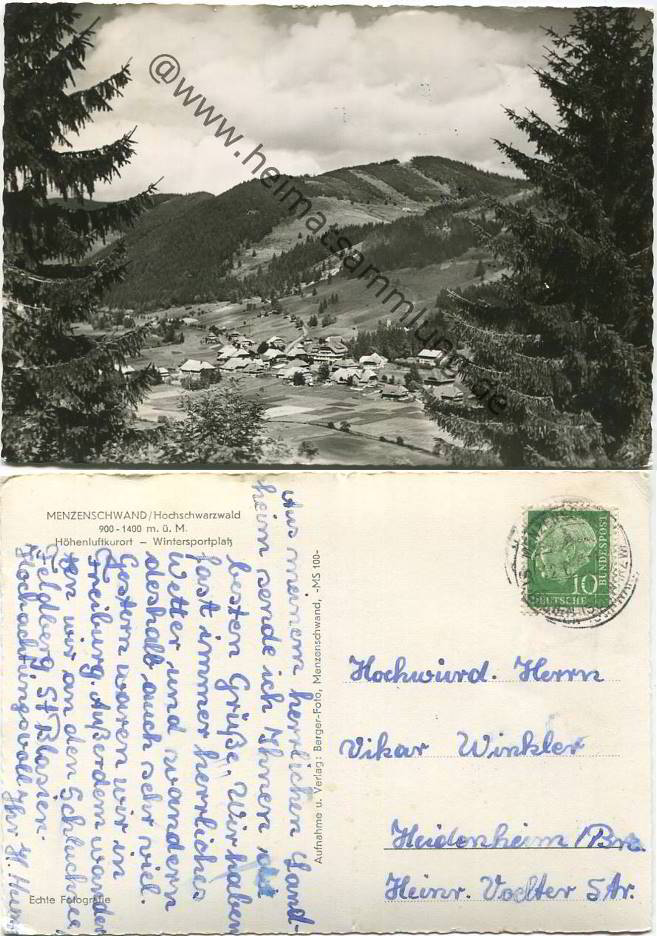 @www.heimatsammlung.de
MENZENSCHWAND/Hochschwarzwald
900-1400 m. ü. M.
Höhenluftkurort – Wintersportplatz
Aus meinem herrlichen Land-
heim sende ich Ihnen die
besten Grüße. Wir haben
fast immer herrliches
Wetter und wandern
deshalb auch sehr viel.
Gestern waren wir in
Freiburg. Außerdem wander
ten wir an den Schluchsee,
Feldberg, St Blasien.
Hochachtungsvoll Ihr H.
Echte Fotografie
Aufnahme u. Verlag: Berger-Foto, Menzenschwand, -MS 100-
DEUTSCHE
BUNDESPOST
10
Hochwürd. Herrn
Vikar Winkler
Heidenheim/Brz.
Heinr. Voelter Str.